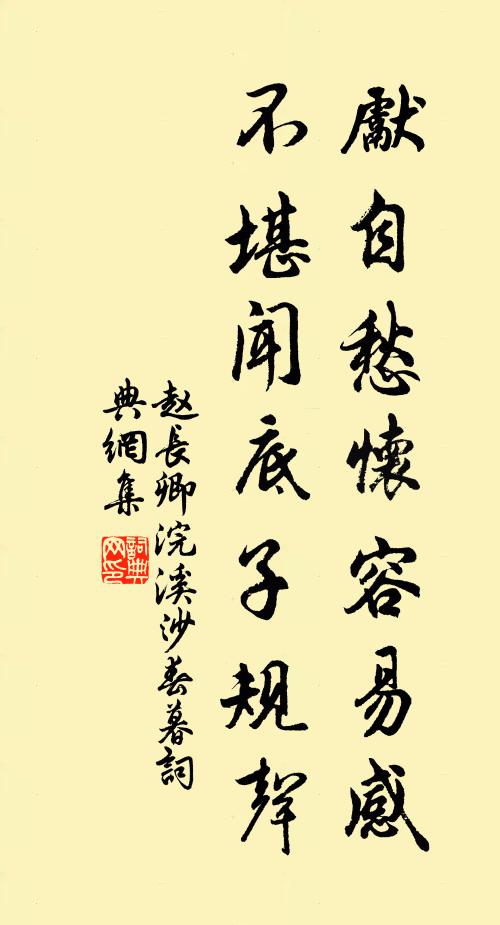 獻自愁懷容易感
不堪聞底子規聲
赵長卿浣溪沙春暮詞
典網集
詞典
网印